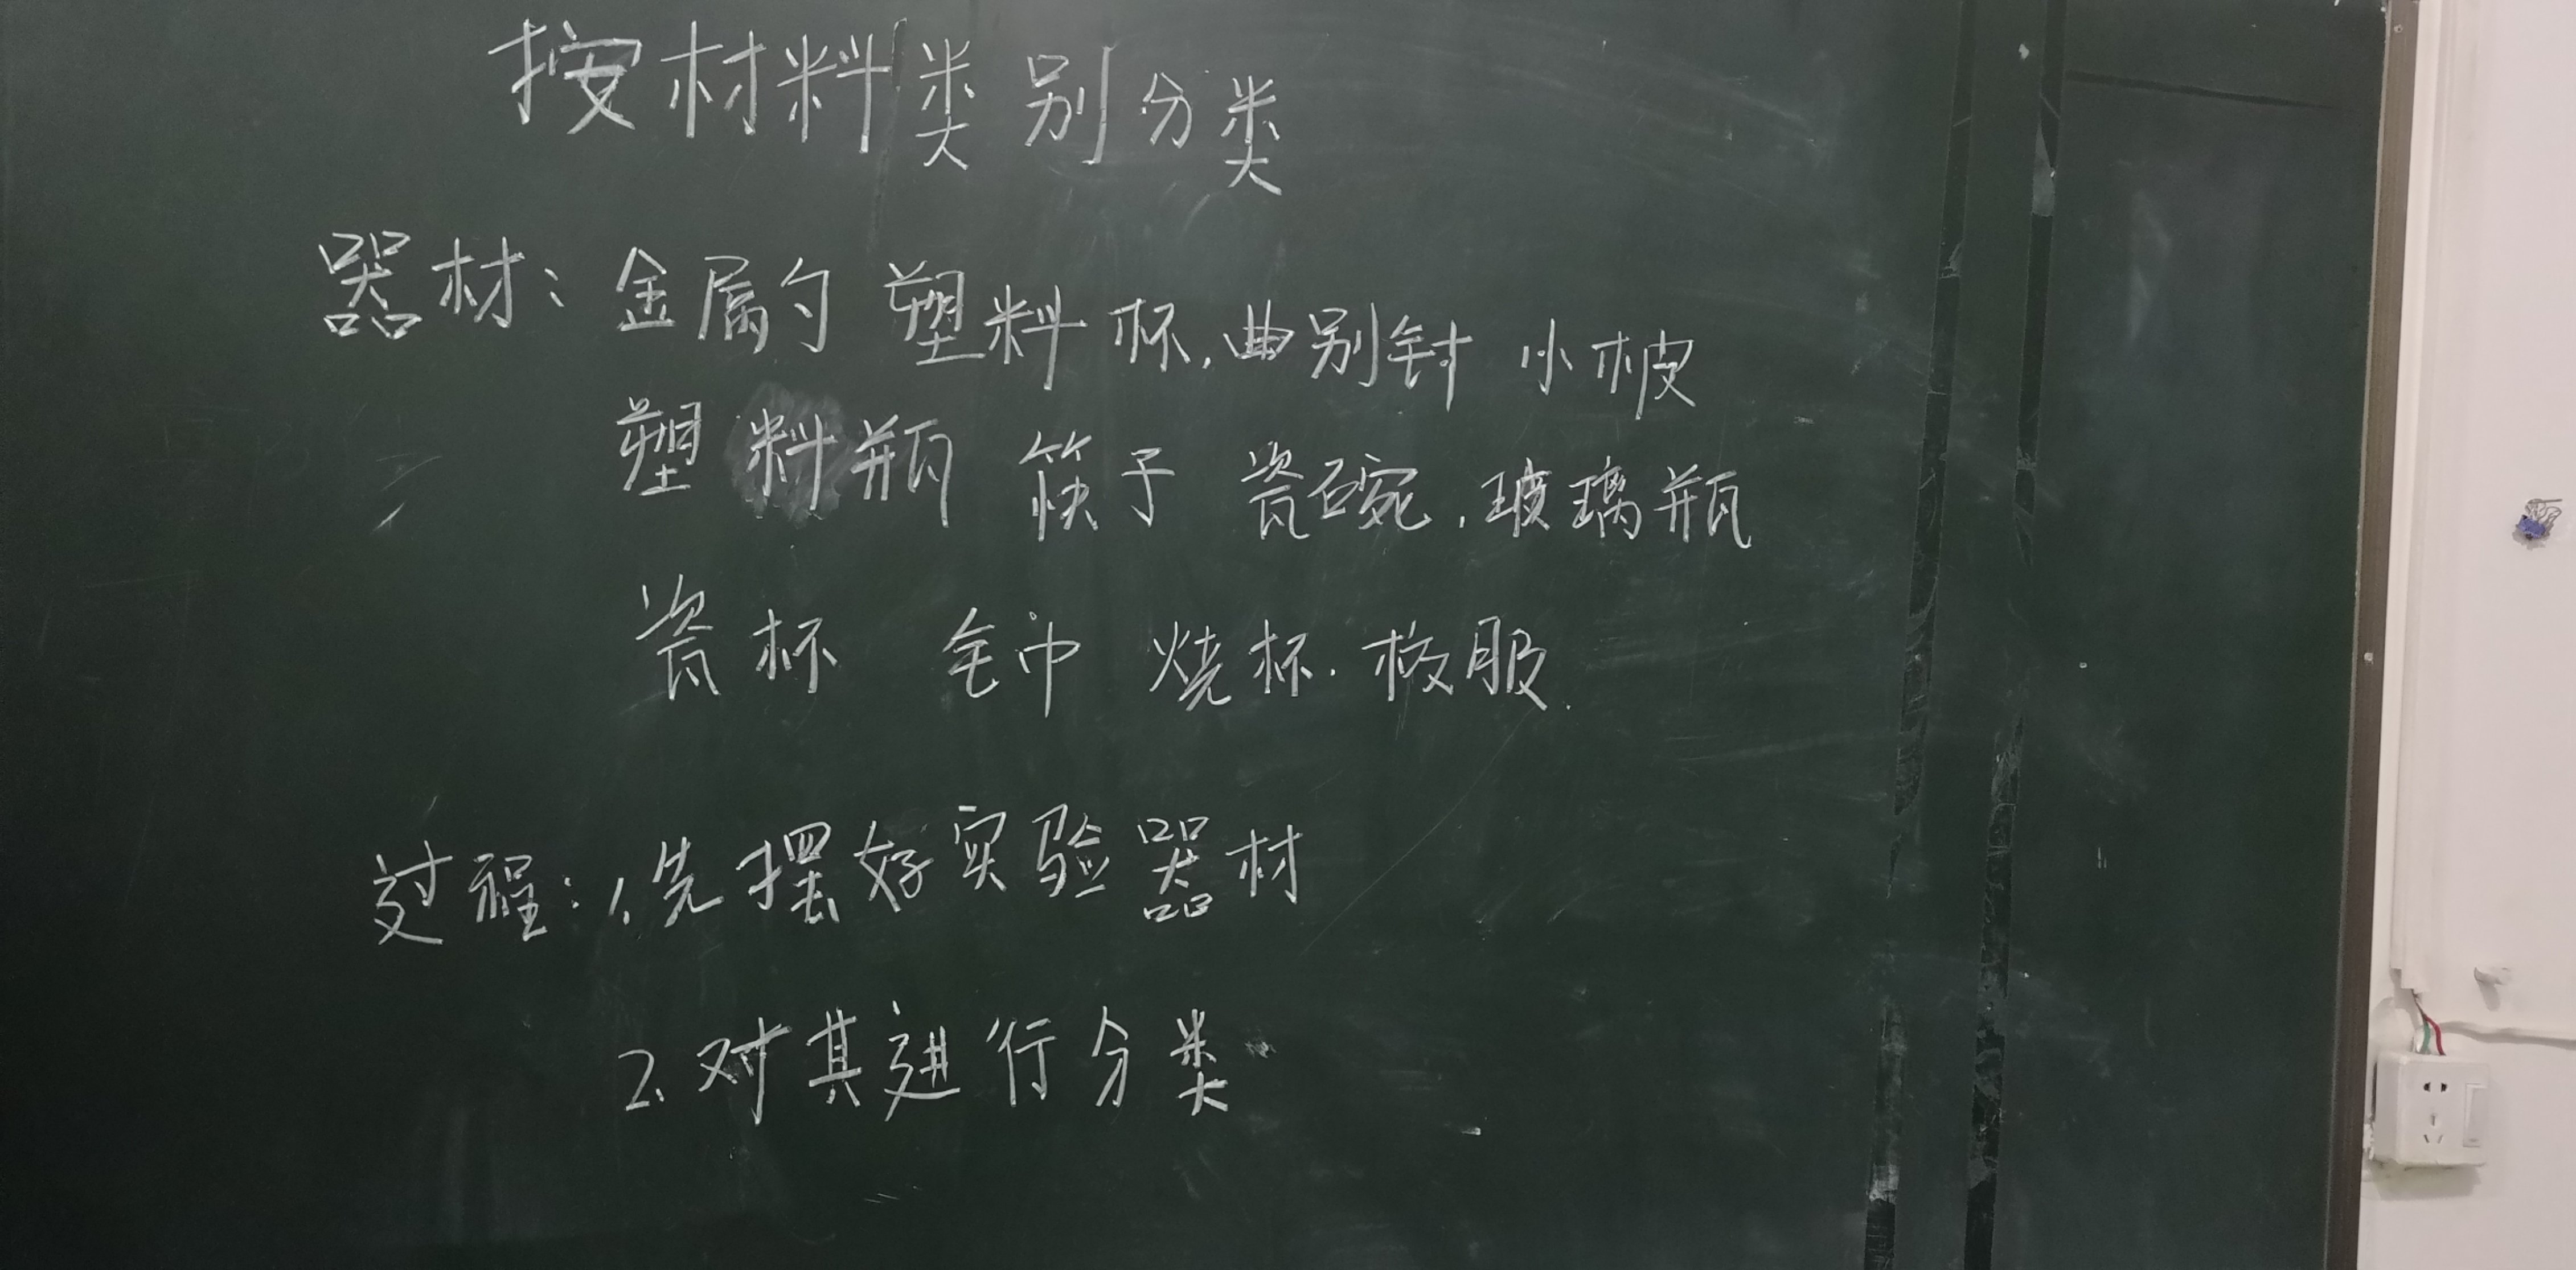 按材料类别分类
器材：金属勺 塑料杯，曲别针 小棍
塑料瓶 筷子 瓷碗，玻璃瓶
瓷杯 毛巾 烧杯．校服．
过程：1、先摆好实验器材
2、对其进行分类